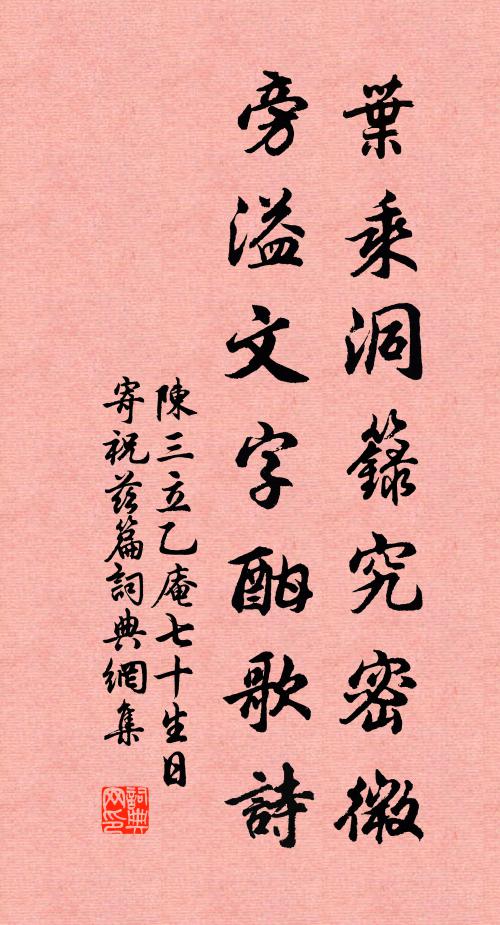 葉乘洞籙究密微
旁溢文字酣歌詩
陳三立乙庵七十生日
寄祝茲篇詞典網集
詞典網印